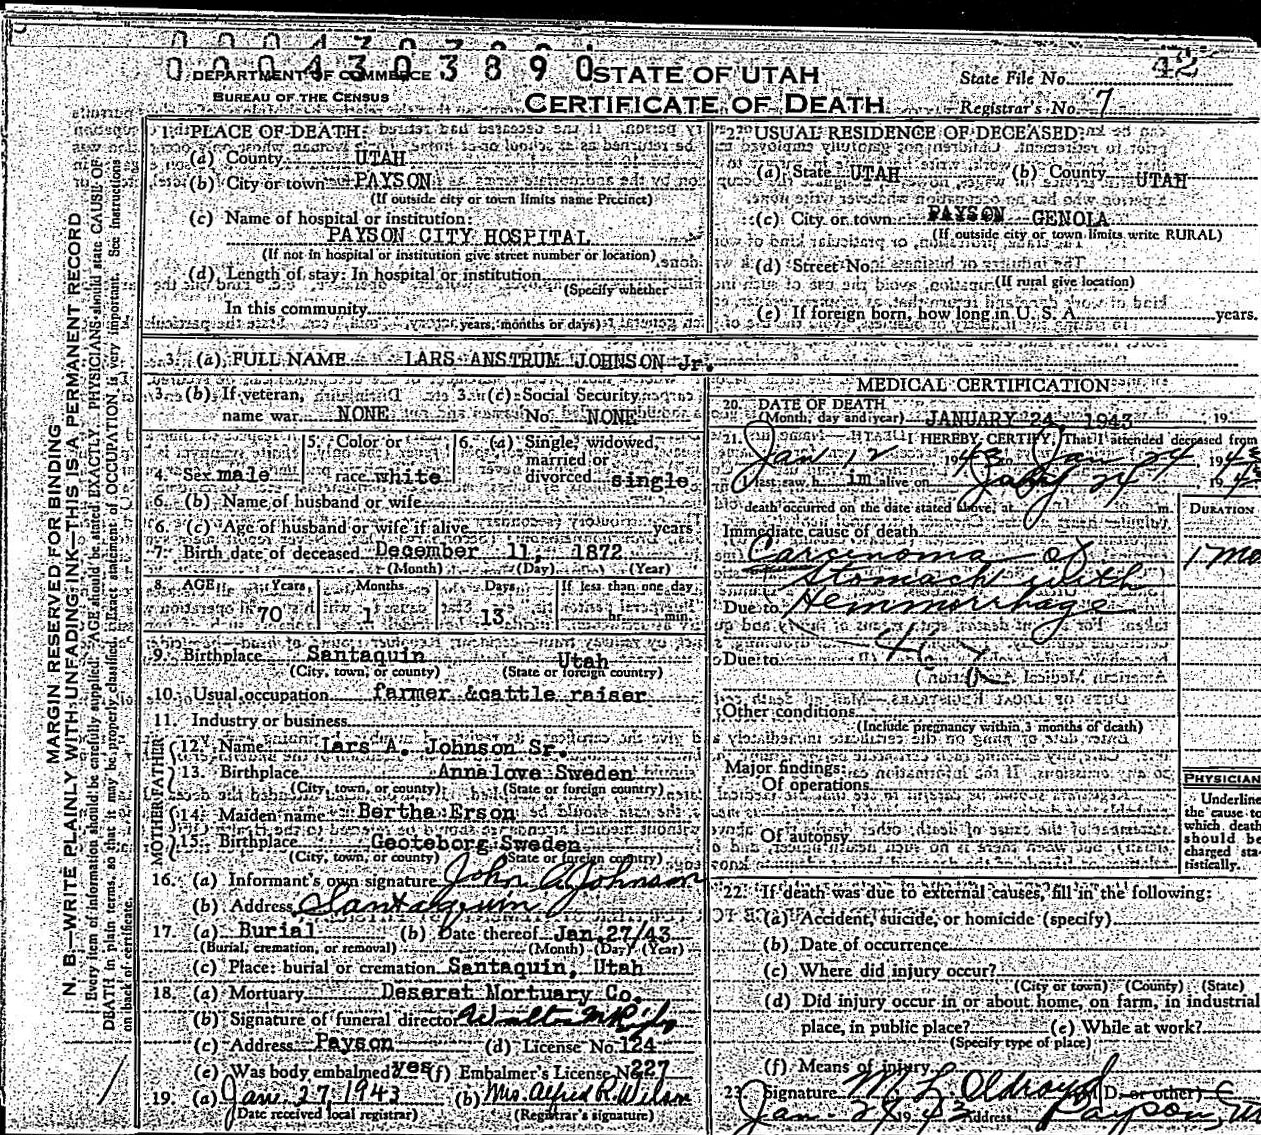 0 0 0 4 3 0 3 8 9 0
DEPARTMENT OF COMMERCE
BUREAU OF THE CENSUS
STATE OF UTAH
CERTIFICATE OF DEATH
State File No. 42
Registrar's No. 7
MARGIN RESERVED FOR BINDING
N. B.—WRITE PLAINLY WITH UNFADING INK—THIS IS A PERMANENT RECORD
Every item of information should be carefully supplied. AGE should be stated EXACTLY. PHYSICIANS should state CAUSE OF
DEATH in plain terms, so that it may be properly classified. Exact statement of OCCUPATION is very important. See instructions
on back of certificate.
1. PLACE OF DEATH:
(a) County UTAH
(b) City or town PAYSON
(If outside city or town limits name Precinct)
(c) Name of hospital or institution:
PAYSON CITY HOSPITAL
(If not in hospital or institution give street number or location)
(d) Length of stay: In hospital or institution
(Specify whether
In this community
years, months or days)
2. USUAL RESIDENCE OF DECEASED:
(a) State UTAH (b) County UTAH
(c) City or town PAYSON GENOLA
(If outside city or town limits write RURAL)
(d) Street No.
(If rural give location)
(e) If foreign born, how long in U. S. A. years.
3. (a) FULL NAME LARS ANSTRUM JOHNSON Jr.
3. (b) If veteran, name war NONE
3. (c) Social Security No. NONE
4. Sex male
5. Color or race white
6. (a) Single, widowed, married or divorced single
6. (b) Name of husband or wife
6. (c) Age of husband or wife if alive years
7. Birth date of deceased December 11, 1872
(Month) (Day) (Year)
8. AGE Years Months Days If less than one day
70 1 13 hr. min.
9. Birthplace Santaquin Utah
(City, town, or county) (State or foreign country)
10. Usual occupation farmer &cattle raiser
11. Industry or business
FATHER
12. Name Lars A. Johnson Sr.
13. Birthplace Annalove Sweden
(City, town, or county) (State or foreign country)
MOTHER
14. Maiden name Bertha Erson
15. Birthplace Geoteborg Sweden
(City, town, or county) (State or foreign country)
16. (a) Informant's own signature John A Johnson
(b) Address Santaquin
17. (a) Burial (b) Date thereof Jan 27/43
(Burial, cremation, or removal) (Month) (Day) (Year)
(c) Place: burial or cremation Santaquin, Utah
18. (a) Mortuary Deseret Mortuary Co.
(b) Signature of funeral director
(c) Address Payson (d) License No. 124
(e) Was body embalmed yes (f) Embalmer's License No 227
19. (a) Jan 27 1943 (b) Mrs. Alfred R. Wilson
(Date received local registrar) (Registrar's signature)
MEDICAL CERTIFICATION
20. DATE OF DEATH
(Month, day and year) JANUARY 24, 1943 19
21. I HEREBY CERTIFY, That I attended deceased from
Jan 12 1943 to Jan 24, 1943
I last saw h im alive on Jan 24 1943
death occurred on the date stated above, at m.
DURATION
Immediate cause of death
Carcinoma of 1 Mo
stomach with
Due to Hemmorrhage
Due to
Other conditions
(Include pregnancy within 3 months of death)
Major findings:
Of operations
Of autopsy
PHYSICIAN
Underline
the cause to
which death
should be
charged sta-
tistically.
22. If death was due to external causes, fill in the following:
(a) Accident, suicide, or homicide (specify)
(b) Date of occurrence
(c) Where did injury occur?
(City or town) (County) (State)
(d) Did injury occur in or about home, on farm, in industrial
place, in public place? (e) While at work?
(Specify type of place)
(f) Means of injury
23. Signature M L Oldroyd (M. D. or other)
Jan - 29 1943 Address Payson, Ut